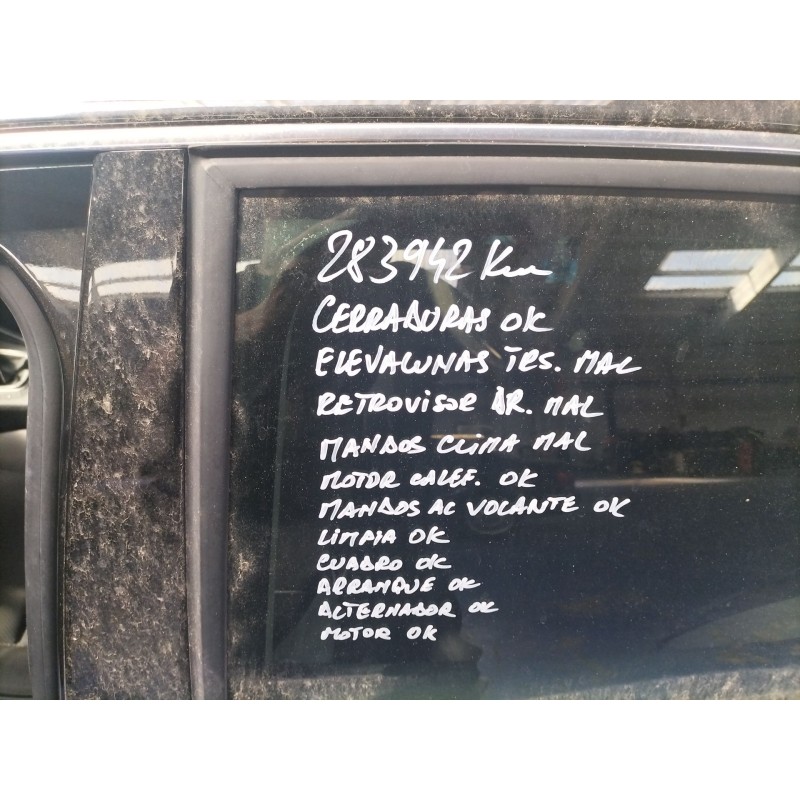 283942 Km
CERRADURAS OK
ELEVALUNAS TRS. MAL
RETROVISOR DR. MAL
MANDOS CLIMA MAL
MOTOR CALEF. OK
MANDOS AL VOLANTE OK
LIMPIA OK
CUADRO OK
ARRANQUE OK
ALTERNADOR OK
MOTOR OK